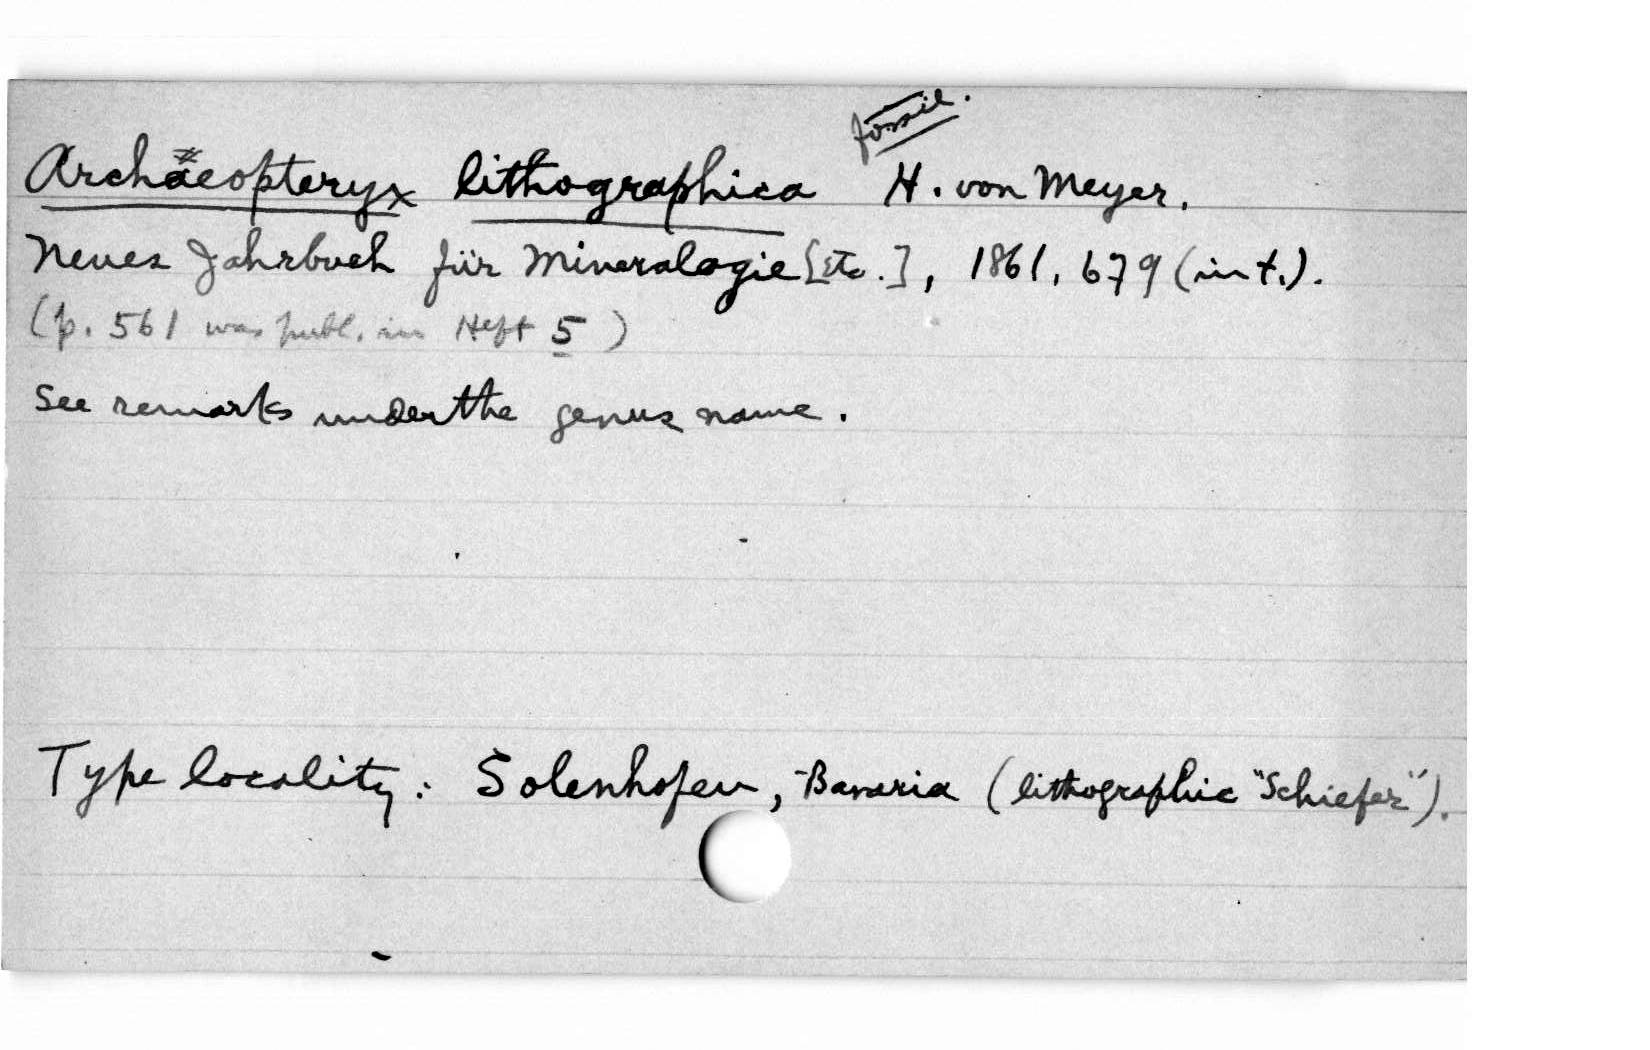 fossil.
Archaeopteryx lithographica H. von Meyer.
Neues Jahrbuch für Mineralogie [etc.], 1861, 679 (in t.).
(p. 561 was publ. in Heft 5)
See remarks under the genus name.
Type locality: Solenhofen, Bavaria (lithographic "Schiefer").